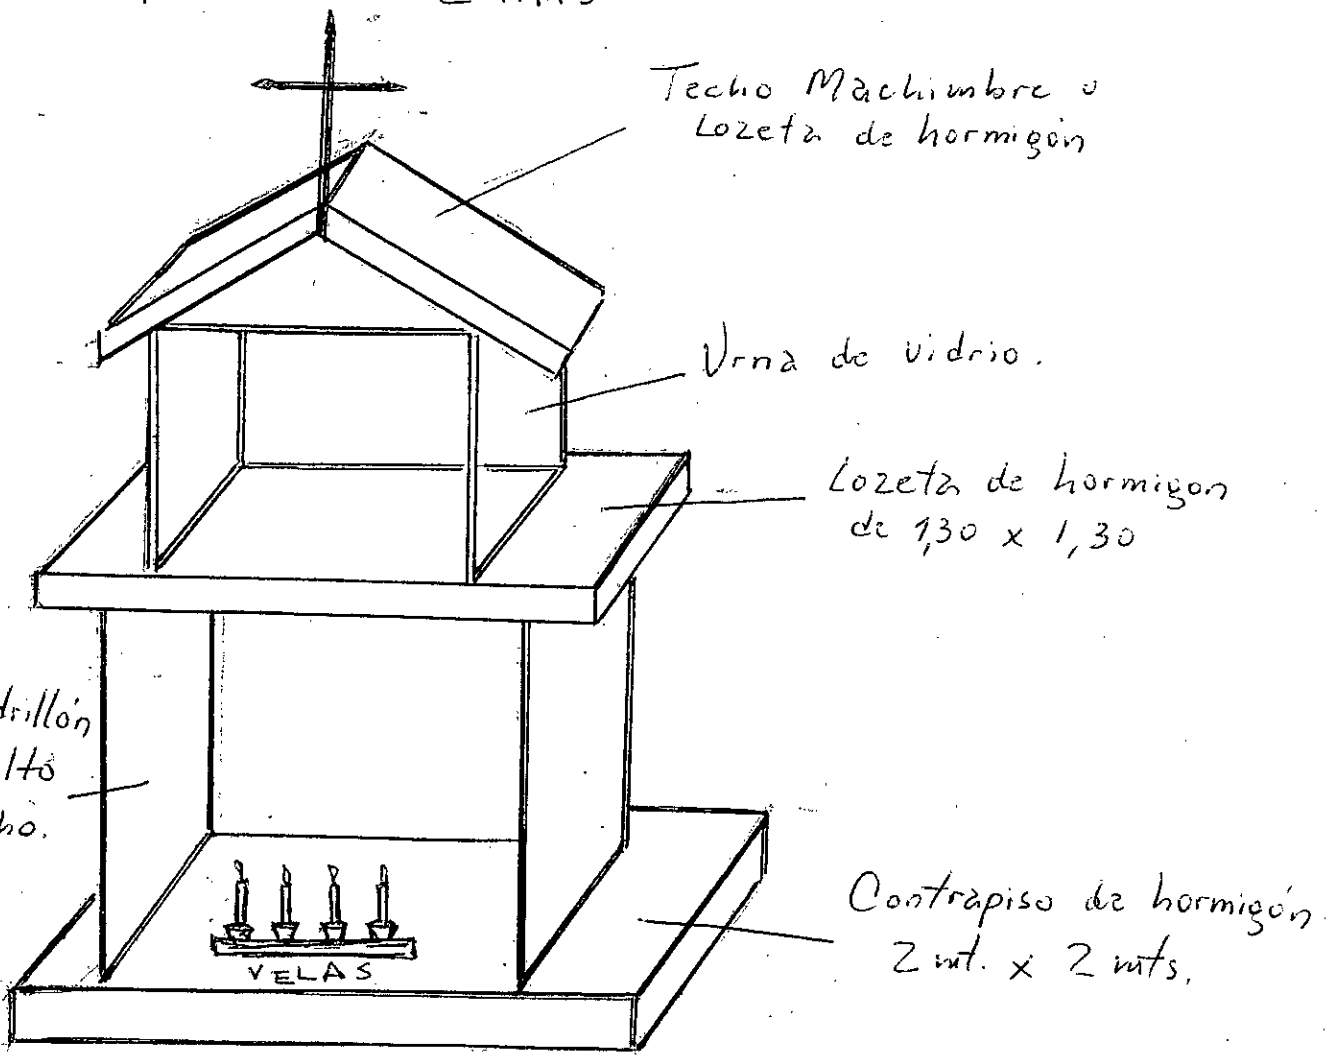 Techo Machimbre o
Lozeta de hormigón
Urna de vidrio.
Lozeta de hormigon
de 1,30 x 1,30
drillón
lto
ho.
VELAS
Contrapiso de hormigón
2 mt. x 2 mts.